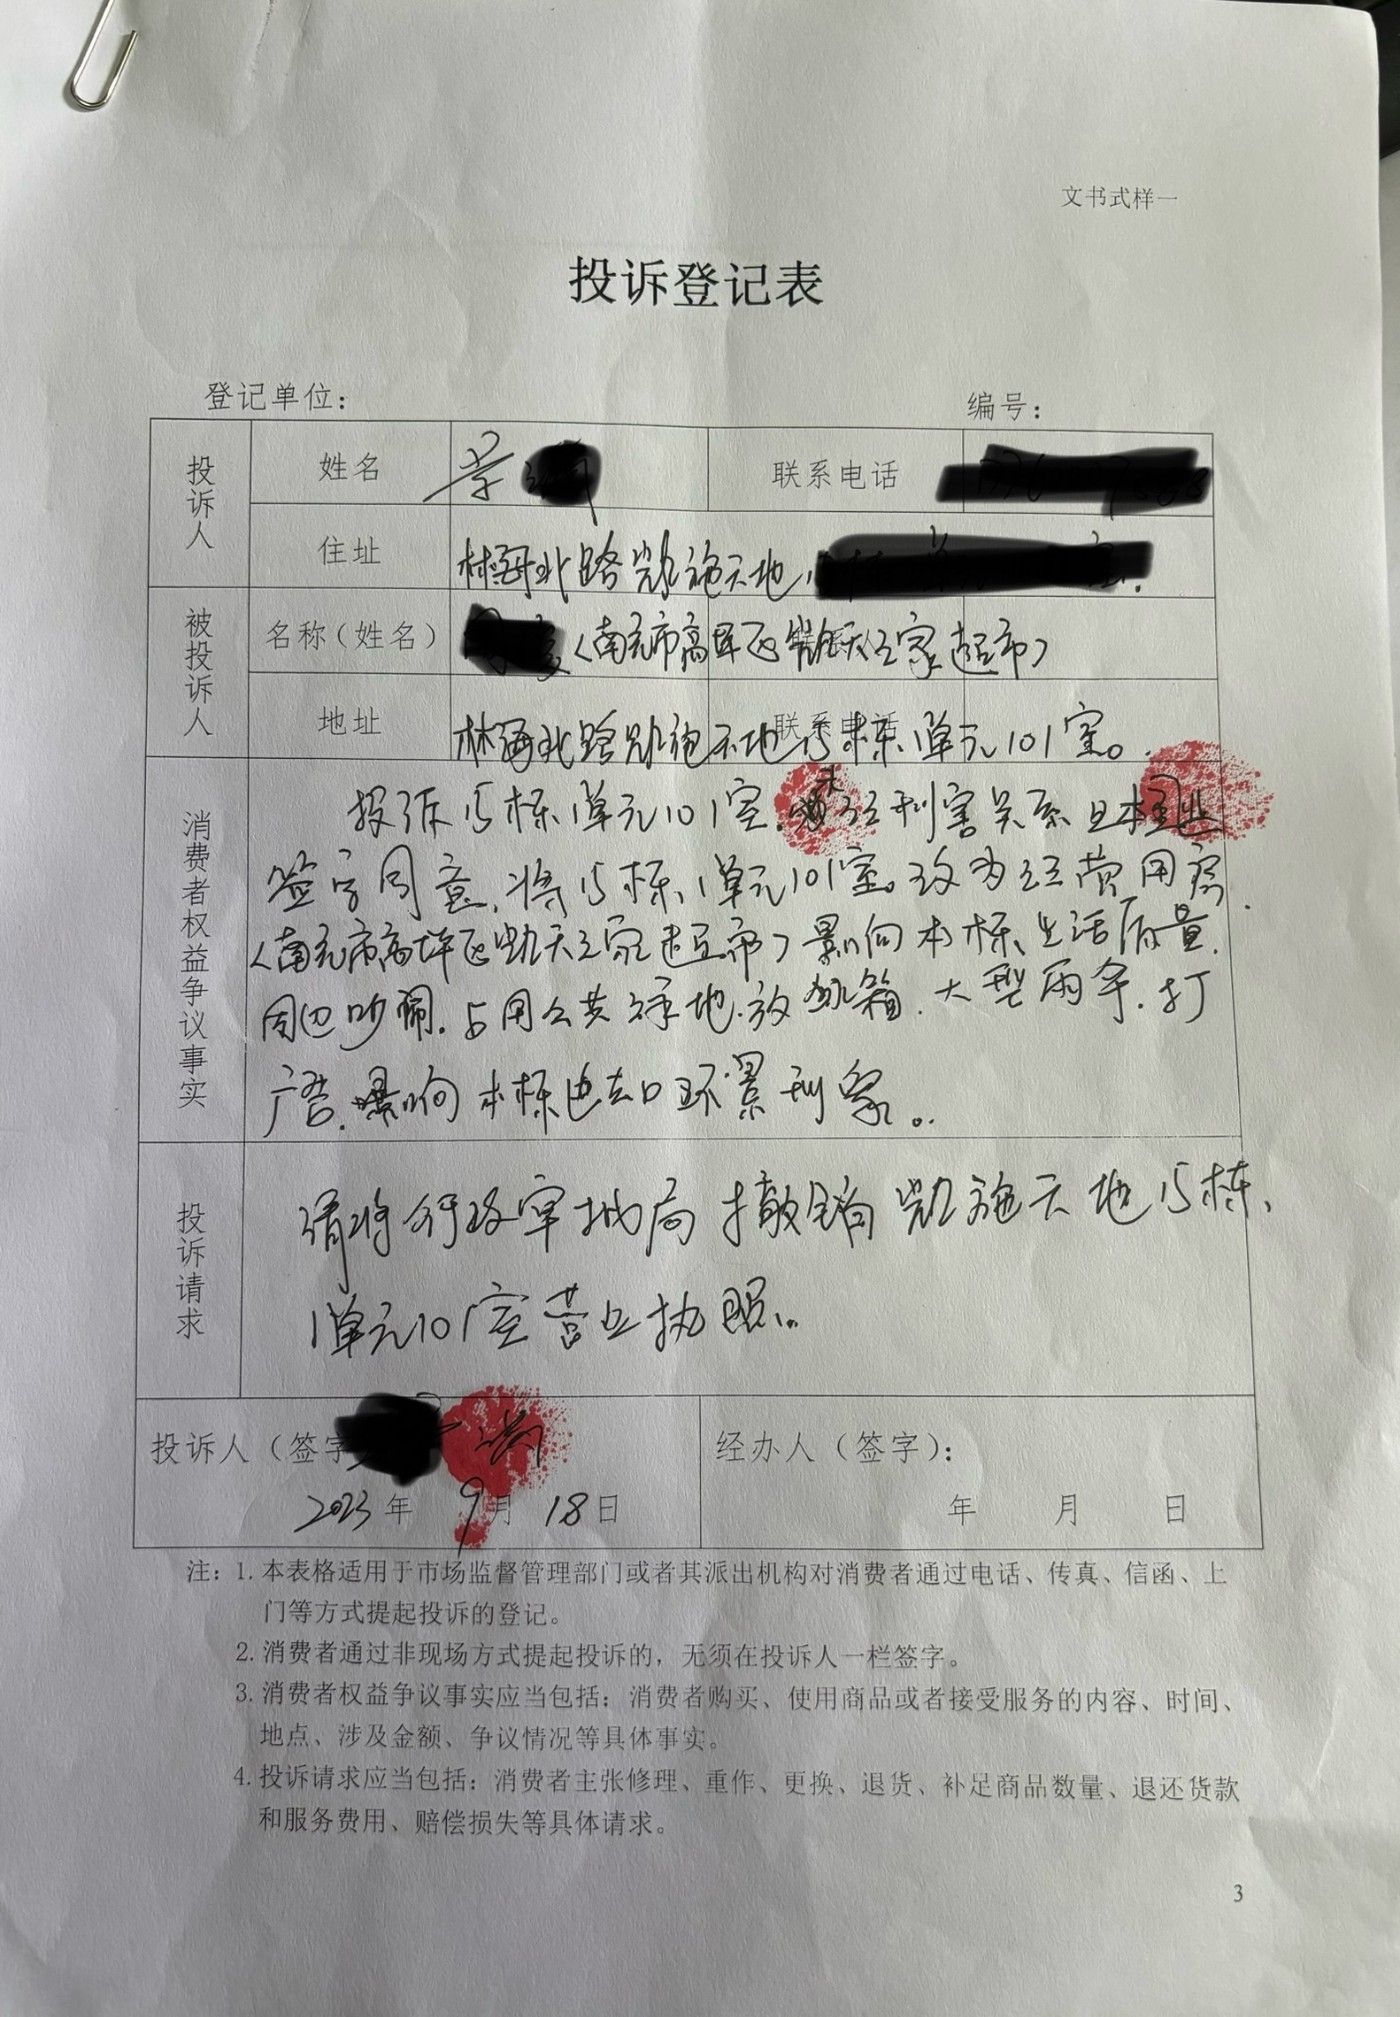 文书式样一
投诉登记表
登记单位： 编号：
投诉人 姓名 联系电话
住址 林海北路凯施天地
被投诉人 名称（姓名） （南充市高坪区凯天之家超市）
地址 林海北路凯施天地15栋1单元101室。 联系电话
消费者权益争议事实
投诉15栋1单元101室，未经利害关系且本栋业
签字同意，将15栋1单元101室。改为经营用房
（南充市高坪区凯天之家超市）影响本栋生活质量，
周边吵闹，占用公共绿地，放冰箱，大型雨伞，打
广告，影响本栋进出口环景形象。
投诉请求
请将行政审批局撤销凯施天地15栋
1单元101室营业执照。
投诉人（签字 经办人（签字）：
2023年 9月 18日 年 月 日
注：1. 本表格适用于市场监督管理部门或者其派出机构对消费者通过电话、传真、信函、上
门等方式提起投诉的登记。
2. 消费者通过非现场方式提起投诉的，无须在投诉人一栏签字。
3. 消费者权益争议事实应当包括：消费者购买、使用商品或者接受服务的内容、时间、
地点、涉及金额、争议情况等具体事实。
4. 投诉请求应当包括：消费者主张修理、重作、更换、退货、补足商品数量、退还货款
和服务费用、赔偿损失等具体请求。
3